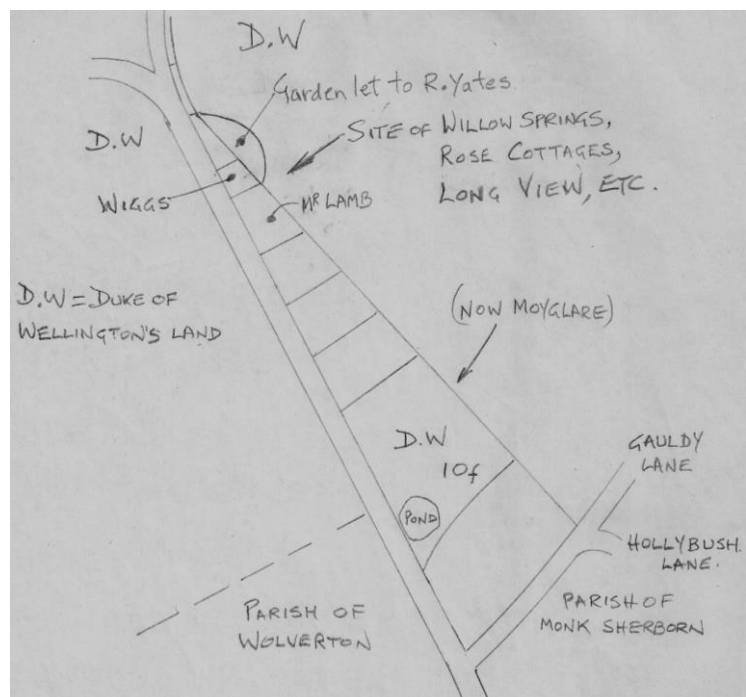 D.W
Garden let to R. Yates
D.W
SITE OF WILLOW SPRINGS,
ROSE COTTAGES,
LONG VIEW, ETC.
WIGGS
MR LAMB
D.W = DUKE OF
WELLINGTON'S LAND
(NOW MOYGLARE)
D.W
10f
POND
GAULDY
LANE
HOLLYBUSH
LANE.
PARISH OF
WOLVERTON
PARISH OF
MONK SHERBORN